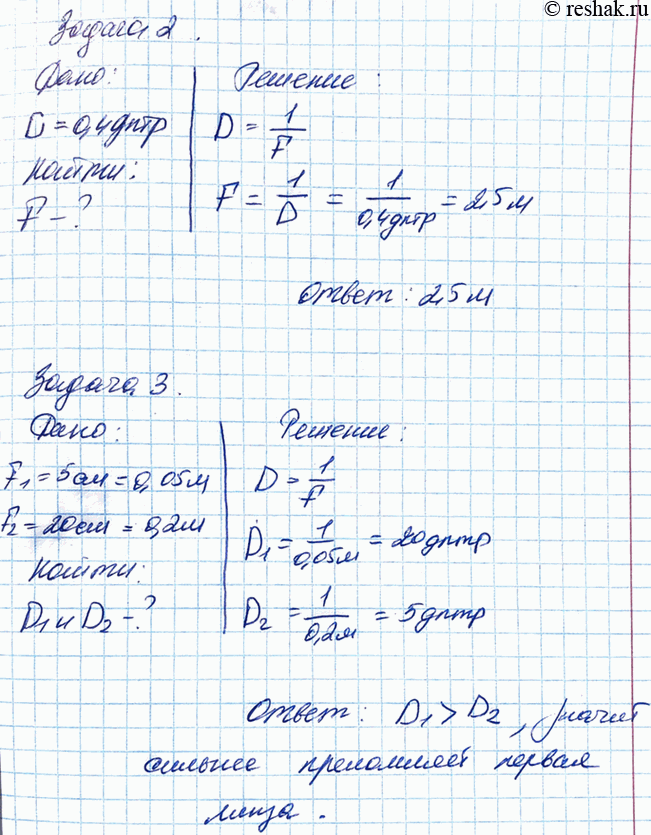 © reshak.ru
Задача 2.
Дано:
D = 0,4 дптр
Найти:
F - ?
Решение:
D = 1/F
F = 1/D = 1/0,4 дптр = 2,5 м
Ответ: 2,5 м
Задача 3.
Дано:
F₁ = 5 см = 0,05 м
F₂ = 20 см = 0,2 м
Найти:
D₁ и D₂ - ?
Решение:
D = 1/F
D₁ = 1/0,05м = 20 дптр
D₂ = 1/0,2м = 5 дптр
Ответ: D₁ > D₂, значит
сильнее преломляет первая
линза.